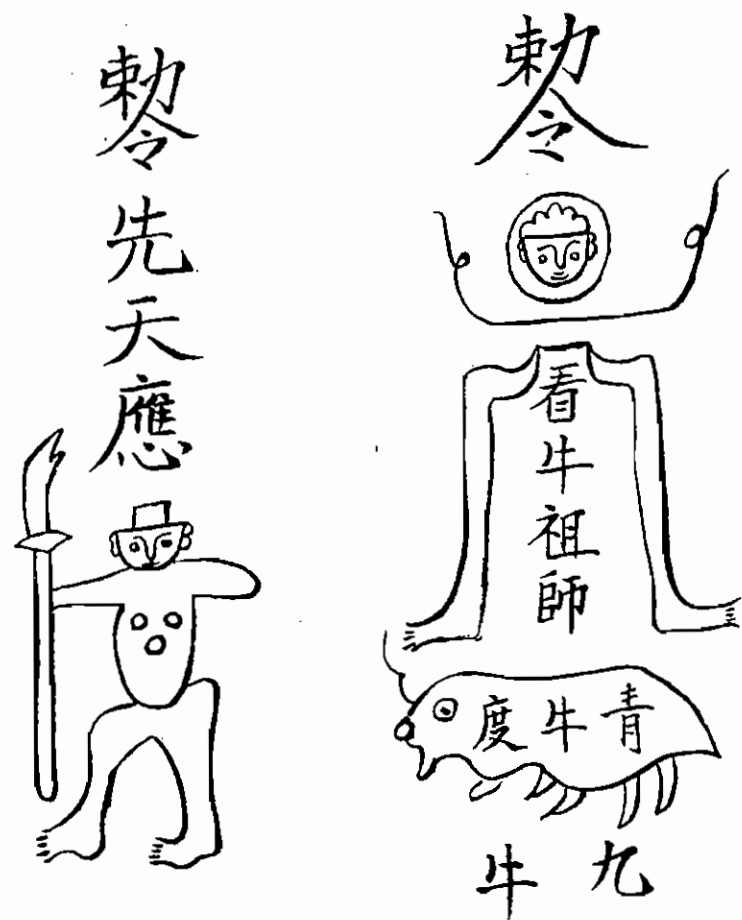 勅令
看牛祖師
青牛度
九牛
勅令先天應